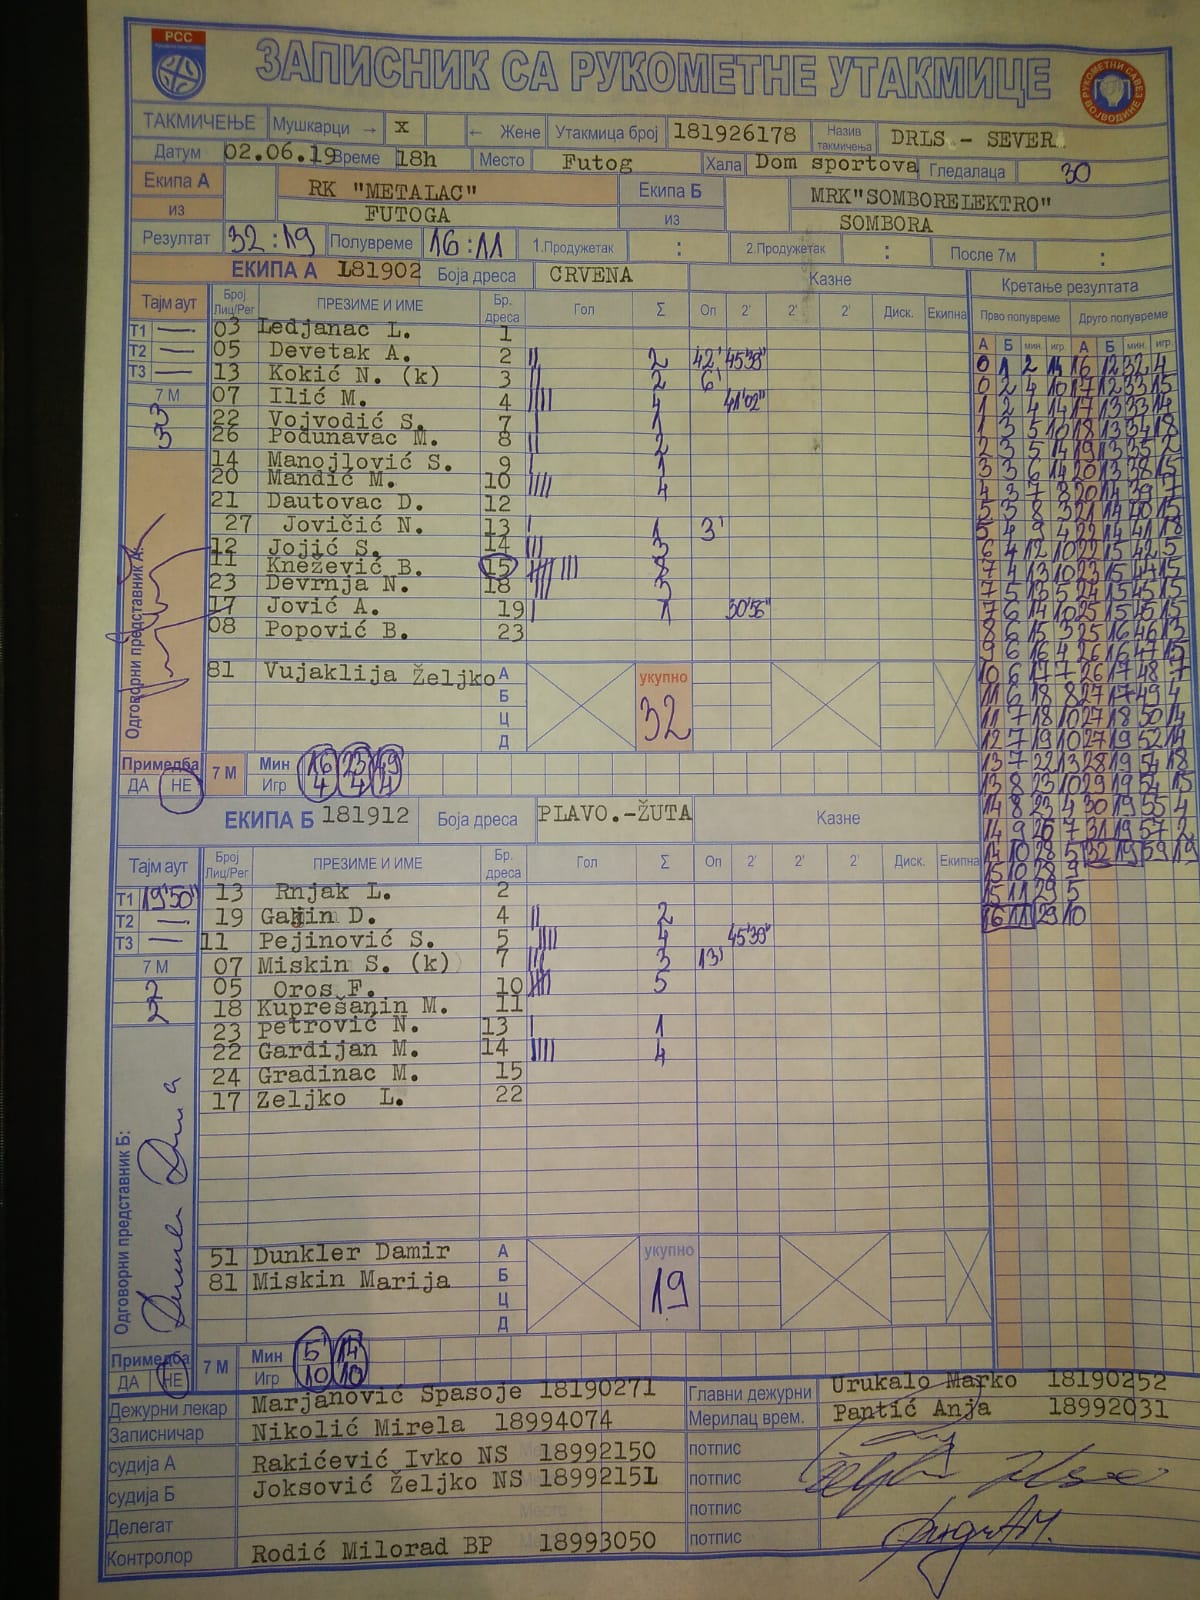 РСС
ЗАПИСНИК СА РУКОМЕТНЕ УТАКМИЦЕ
РУКОМЕТНИ САВЕЗ ВОЈВОДИНЕ
ТАКМИЧЕЊЕ Мушкарци → x ← Жене Утакмица број 181926178 Назив такмичења DRLS.- SEVER
Датум 02.06.19 Време 18h Место Futog Хала Dom sportova Гледалаца 30
Екипа А RK "METALAC" Екипа Б MRK"SOMBORELEKTRO"
из FUTOGA из SOMBORA
Резултат 32:19 Полувреме 16:11 1.Продужетак : 2.Продужетак : После 7м :
ЕКИПА А 181902 Боја дреса CRVENA Казне Кретање резултата
Тајм аут Број Лиц/Рег ПРЕЗИМЕ И ИМЕ Бр. дреса Гол Σ Оп 2' 2' 2' Диск. Екипна Прво полувреме Друго полувреме
А Б мин. игр. А Б мин. игр.
T1 — 03 Ledjanac L. 1
T2 — 05 Devetak A. 2 || 2 42' 45'39"
T3 — 13 Kokić N. (k) 3 || 2 6'
7 М 07 Ilić M. 4 |||| 4 41'02"
3 22 Vojvodić S. 7 | 1
3 26 Podunavac M. 8 || 2
14 Manojlović S. 9 | 1
20 Mandić M. 10 |||| 4
21 Dautovac D. 12
27 Jovičić N. 13 | 1 3'
12 Jojić S. 14 ||| 3
11 Knežević B. 15 8
23 Devrnja N. 18 3
17 Jović A. 19 | 1 30'56"
08 Popović B. 23
81 Vujaklija Željko А
Б
Ц
Д
укупно
32
Одговорни представник А:
0 1 2 14 16 12 32 4
0 2 4 10 17 12 33 15
1 2 4 14 17 13 33 14
1 3 5 10 18 13 34 18
2 3 5 14 19 13 35 2
3 3 6 14 20 13 38 15
4 3 7 8 20 14 39 7
5 3 8 3 21 14 40 15
5 4 9 4 22 14 41 18
6 4 12 10 22 15 42 5
7 4 13 10 23 15 44 15
7 5 13 5 24 15 45 15
7 6 14 10 25 15 45 15
8 6 15 3 25 16 46 13
9 6 16 4 26 16 47 15
10 6 17 7 26 17 48 7
11 6 18 8 27 17 49 4
11 7 18 10 27 18 50 14
12 7 19 10 27 19 52 14
13 7 22 13 28 19 54 18
13 8 23 10 29 19 54 15
14 8 23 4 30 19 55 4
14 9 26 7 31 19 57 2
14 10 28 5 32 19 59 19
15 10 28 9
15 11 29 5
16 11 29 10
Примедба 7 М Мин 16 23 49
ДА НЕ Игр 4 4 4
ЕКИПА Б 181912 Боја дреса PLAVO.-ŽUTA Казне
Тајм аут Број Лиц/Рег ПРЕЗИМЕ И ИМЕ Бр. дреса Гол Σ Оп 2' 2' 2' Диск. Екипна
T1 19'50" 13 Rnjak L. 2
T2 — 19 Gakin D. 4 || 2
T3 — 11 Pejinović S. 5 |||| 4 45'39"
7 М 07 Miskin S. (k) 7 ||| 3 13'
2 05 Oros F. 10 5
2 18 Kuprešanin M. 11
23 Petrović N. 13 | 1
22 Gardijan M. 14 |||| 4
24 Gradinac M. 15
17 Zeljko L. 22
Одговорни представник Б:
51 Dunkler Damir А
81 Miskin Marija Б
Ц
Д
укупно
19
Примедба 7 М Мин 5' 14'
ДА НЕ Игр 10 10
Дежурни лекар Marjanović Spasoje 18190271 Главни дежурни Urukalo Marko 18190252
Записничар Nikolić Mirela 18994074 Мерилац врем. Pantić Anja 18992031
судија А Rakićević Ivko NS 18992150 потпис
судија Б Joksović Željko NS 1899215L потпис
Делегат потпис
Контролор Rodić Milorad BP 18993050 потпис